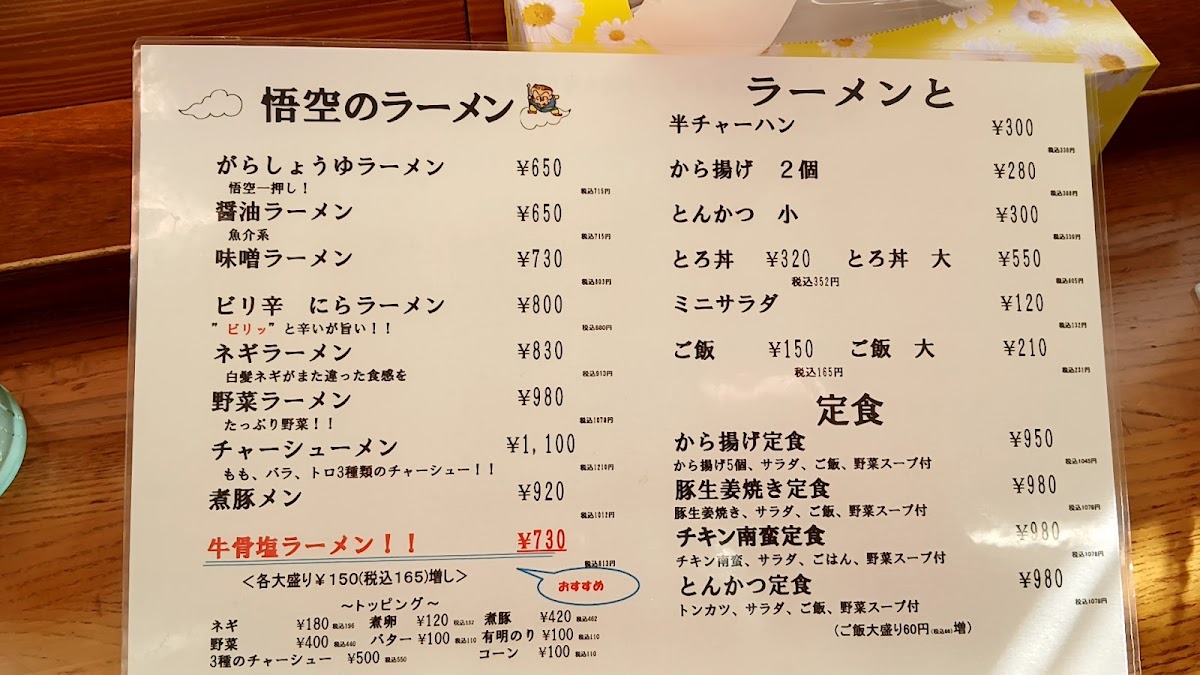 悟空のラーメン
がらしょうゆラーメン ¥650
悟空一押し！ 税込715円
醤油ラーメン ¥650
魚介系 税込715円
味噌ラーメン ¥730
税込803円
ピリ辛 にらラーメン ¥800
”ピリッ”と辛いが旨い！！ 税込880円
ネギラーメン ¥830
白髪ネギがまた違った食感を 税込913円
野菜ラーメン ¥980
たっぷり野菜！！ 税込1078円
チャーシューメン ¥1,100
もも、バラ、トロ3種類のチャーシュー！！ 税込1210円
煮豚メン ¥920
税込1012円
牛骨塩ラーメン！！ ¥730
税込813円
＜各大盛り¥150(税込165)増し＞
おすすめ
～トッピング～
ネギ ¥180 税込198 煮卵 ¥120 税込132 煮豚 ¥420 税込462
野菜 ¥400 税込440 バター ¥100 税込110 有明のり ¥100 税込110
3種のチャーシュー ¥500 税込550 コーン ¥100 税込110
ラーメンと
半チャーハン ¥300
税込330円
から揚げ 2個 ¥280
税込308円
とんかつ 小 ¥300
税込330円
とろ丼 ¥320 とろ丼 大 ¥550
税込352円 税込605円
ミニサラダ ¥120
税込132円
ご飯 ¥150 ご飯 大 ¥210
税込165円 税込231円
定食
から揚げ定食 ¥950
から揚げ5個、サラダ、ご飯、野菜スープ付 税込1045円
豚生姜焼き定食 ¥980
豚生姜焼き、サラダ、ご飯、野菜スープ付 税込1078円
チキン南蛮定食 ¥980
チキン南蛮、サラダ、ごはん、野菜スープ付 税込1078円
とんかつ定食 ¥980
トンカツ、サラダ、ご飯、野菜スープ付 税込1078円
(ご飯大盛り60円(税込66)増)